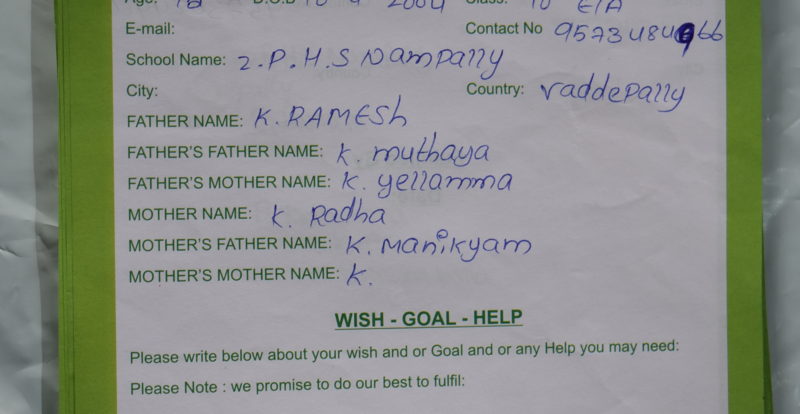 Age: D.O.B 10 9 2004 Class: 10 E/A
E-mail: Contact No 9573484966
School Name: Z.P.H.S Nampally
City: Country: Vaddepally
FATHER NAME: K. RAMESh
FATHER'S FATHER NAME: K. muthaya
FATHER'S MOTHER NAME: K. yellamma
MOTHER NAME: K. Radha
MOTHER'S FATHER NAME: K. Manikyam
MOTHER'S MOTHER NAME: K.
WISH - GOAL - HELP
Please write below about your wish and or Goal and or any Help you may need:
Please Note : we promise to do our best to fulfil: